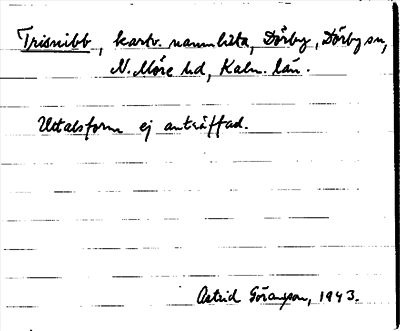 Trisnibb, kartv. namnlista, Dörby, Dörby sn,
N. Möre hd, Kalm. län.
Uttalsform ej anträffad.
Astrid Göranson, 1943.